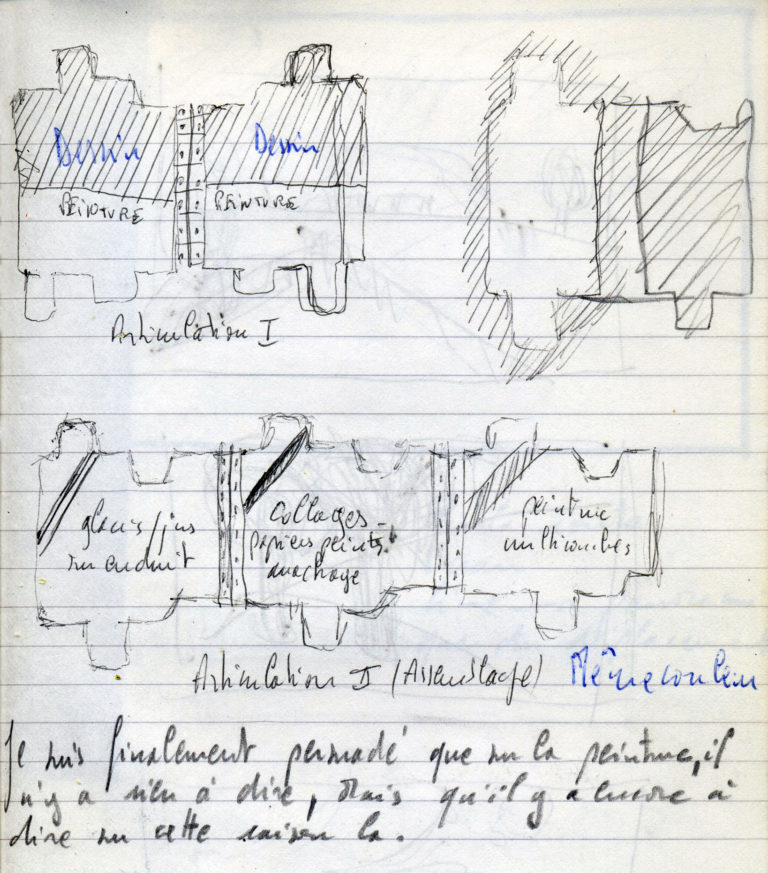 Dessin Dessin
PEINTURE PEINTURE
Articulation I
glacis/jus
sur enduit
Collages -
papiers peints
arrachage
peinture
multicouches
Articulation II (Assemblage) Même couleur
Je suis finalement persuadé que sur la peinture, il
n'y a rien à dire, mais qu'il y a encore à
dire sur cette raison là.